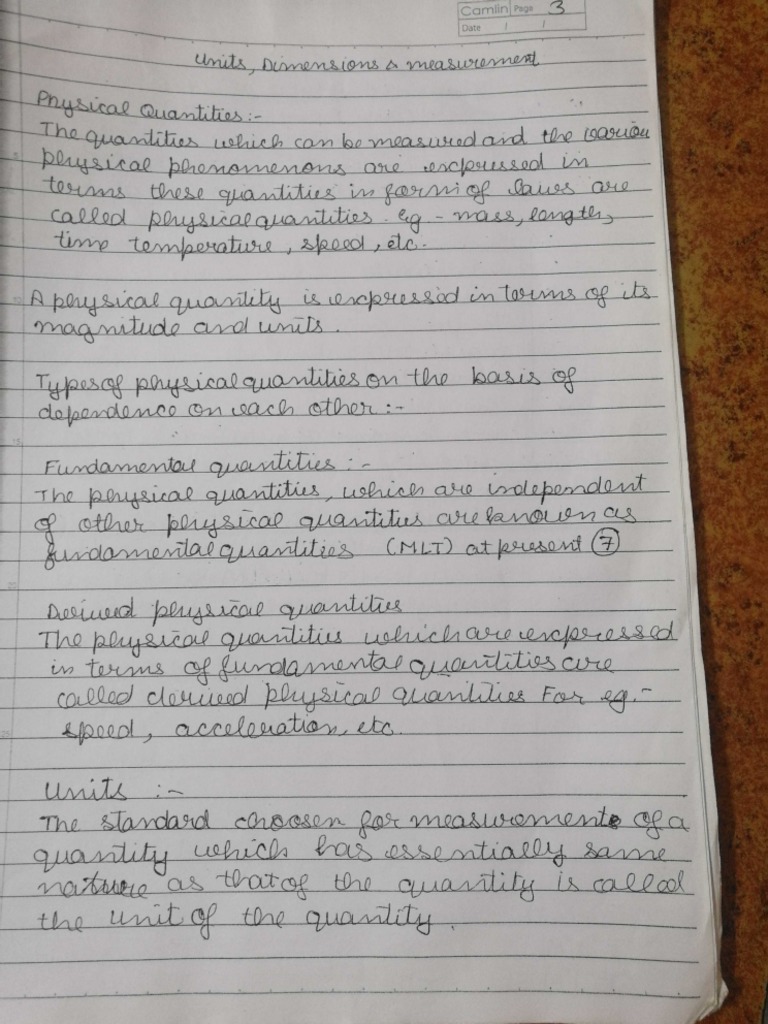 Camlin Page 3
Date / /
Units, Dimensions & measurement
Physical Quantities:-
The quantities which can be measured and the various
physical phenomenons are expressed in
terms these quantities in form of laws are
called physical quantities. eg - mass, length,
time temperature, speed, etc.
A physical quantity is expressed in terms of its
magnitude and units.
Types of physical quantities on the basis of
dependence on each other :-
Fundamental quantities :-
The physical quantities, which are independent
of other physical quantities are known as
fundamental quantities (MLT) at present 7
Derived physical quantities
The physical quantities which are expressed
in terms of fundamental quantities are
called derived physical quantities For eg.-
speed, acceleration, etc.
Units :-
The standard choosen for measurement of a
quantity which has essentially same
nature as that of the quantity is called
the unit of the quantity.